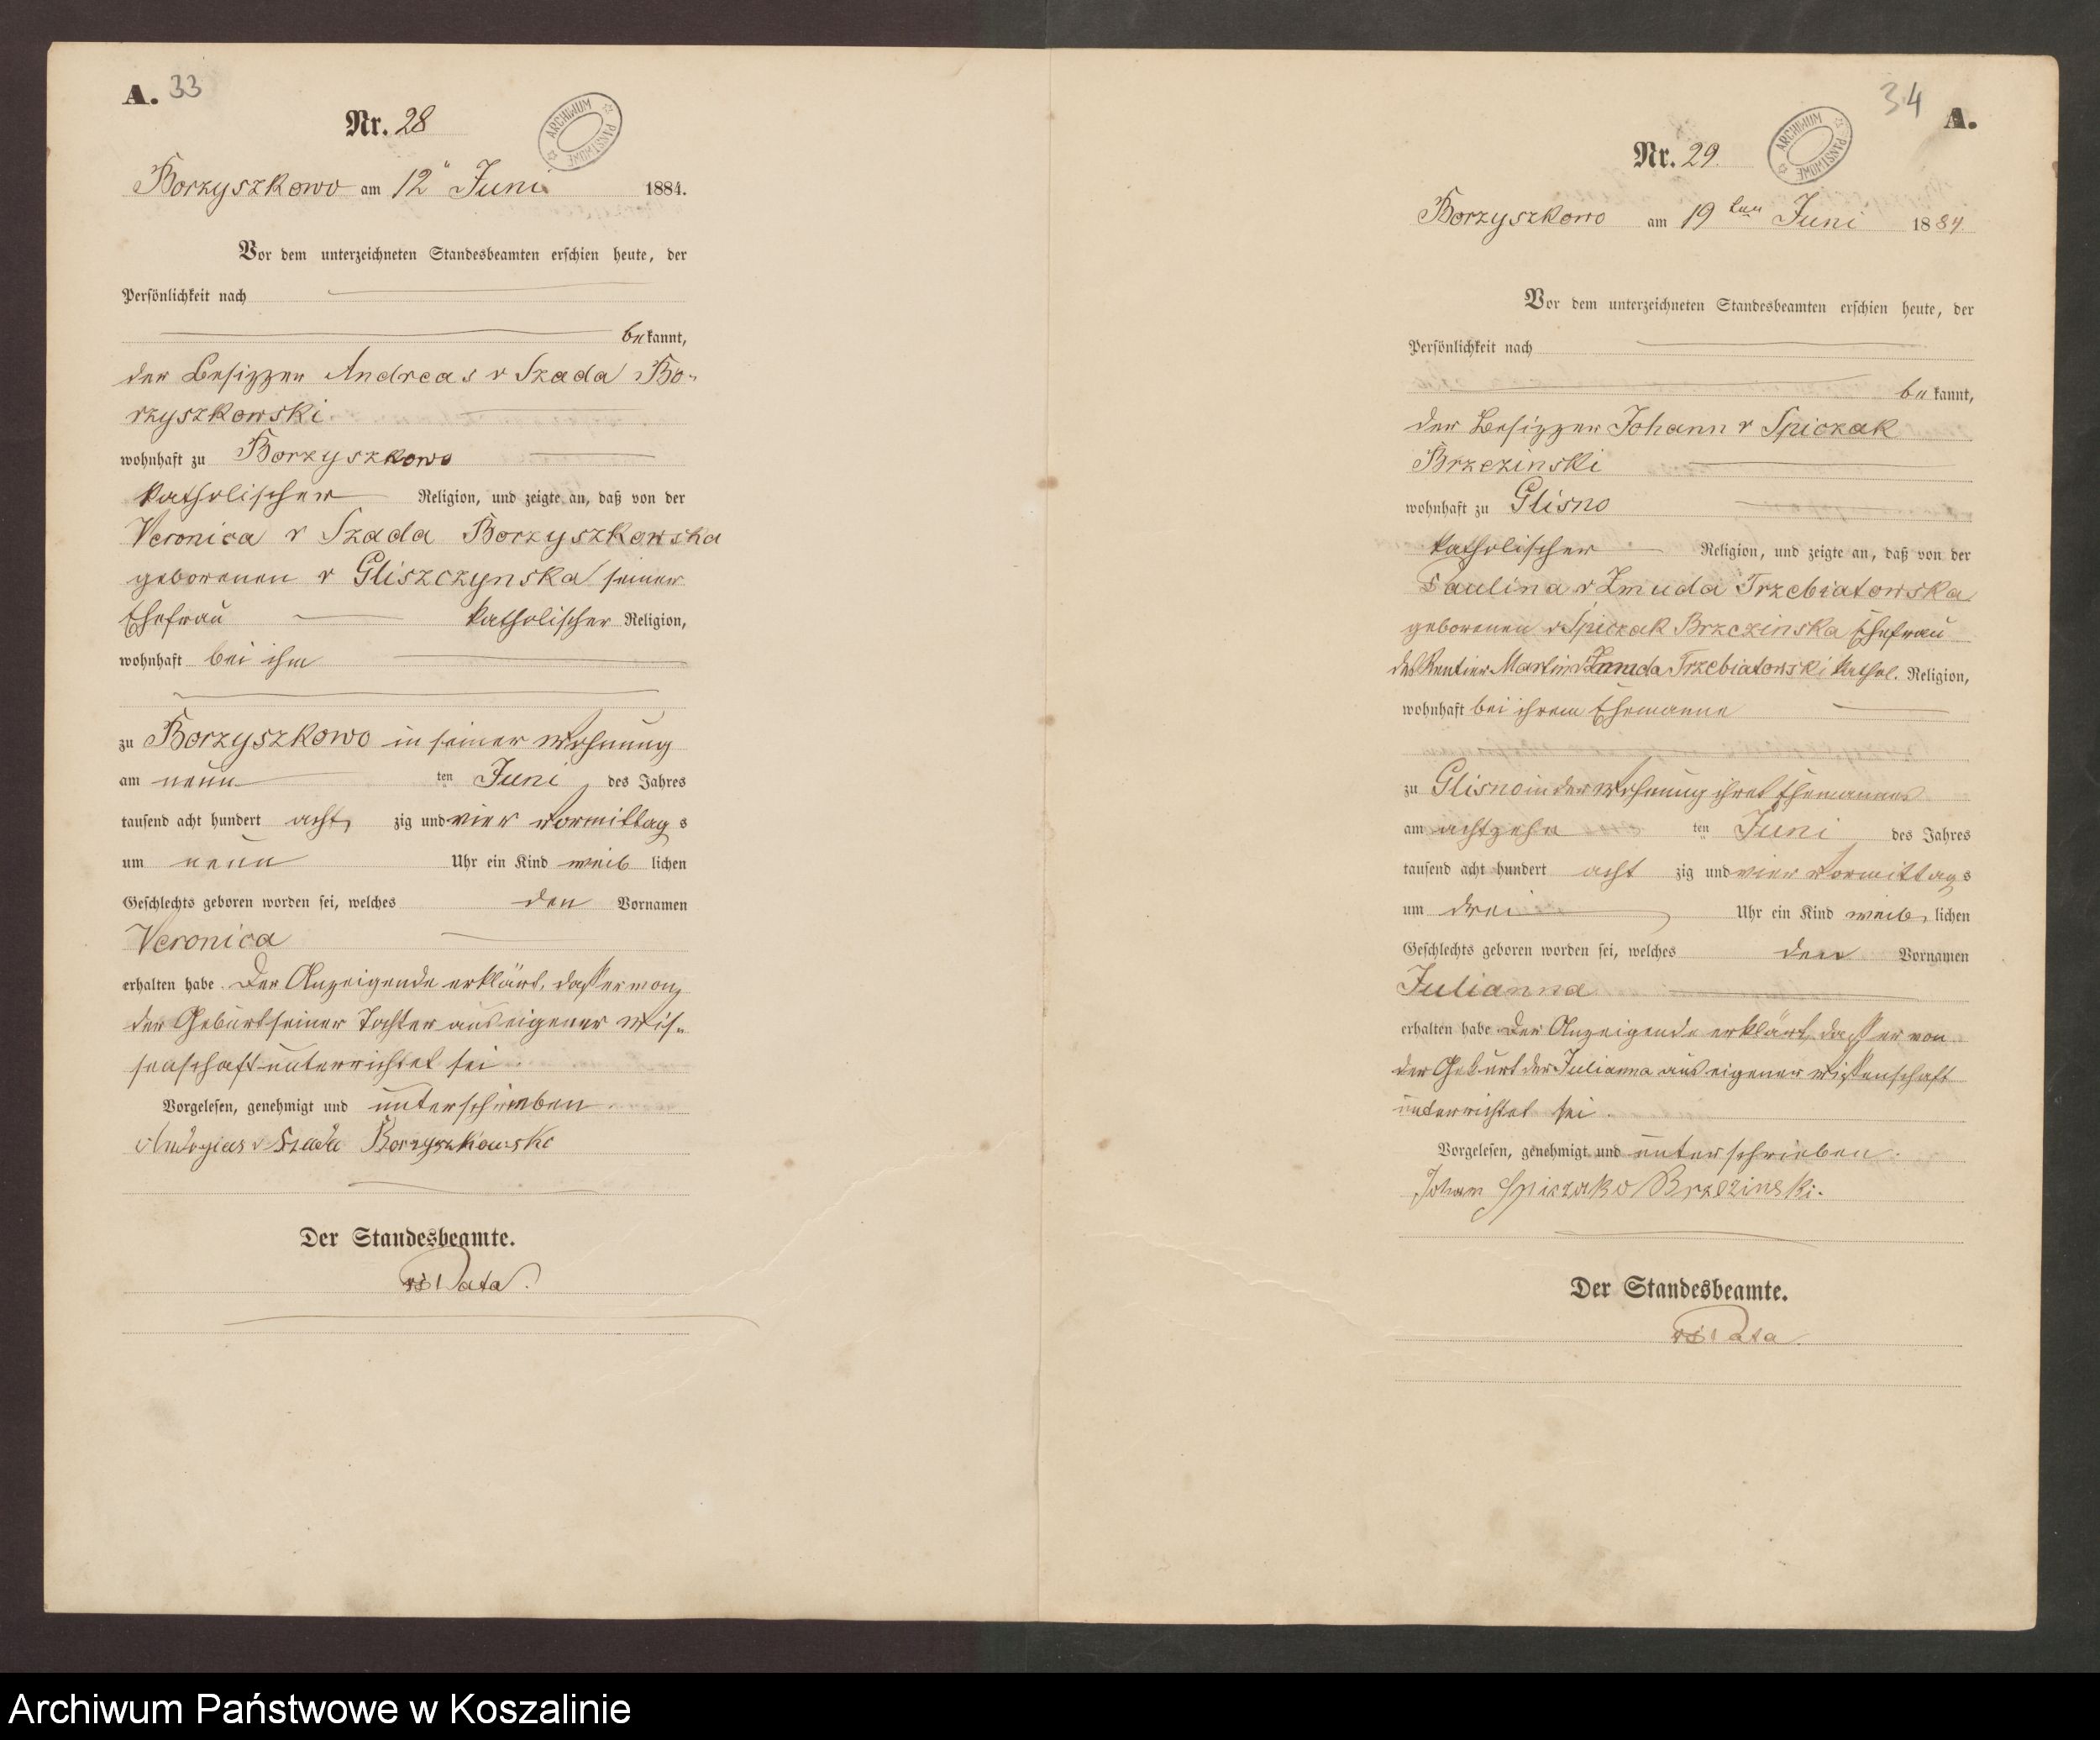 A. 33
Nr. 28
ARCHIWUM PAŃSTWOWE
Borzyszkowo am 12 Juni 1884.
Vor dem unterzeichneten Standesbeamten erschien heute, der
Persönlichkeit nach
bekannt,
der Besitzer Andreas v Szada Bo-
rzyszkowski
wohnhaft zu Borzyszkowo
katholischer Religion, und zeigte an, daß von der
Veronica v Szada Borzyszkowska
geborenen v Gliszczynska seiner
Ehefrau katholischer Religion,
wohnhaft bei ihm
zu Borzyszkowo in seiner Wohnung
am neun ten Juni des Jahres
tausend acht hundert acht zig und vier Vormittags
um neun Uhr ein Kind weiblichen
Geschlechts geboren worden sei, welches den Vornamen
Veronica
erhalten habe. Der Anzeigende erklärt, daß er von
der Geburt seiner Tochter aus eigener Wis-
senschaft unterrichtet sei
Vorgelesen, genehmigt und unterschrieben
v Szada Borzyszkowski
Der Standesbeamte.
Pata.
34 A.
Nr. 29.
ARCHIWUM PAŃSTWOWE
Borzyszkowo am 19ten Juni 1884.
Vor dem unterzeichneten Standesbeamten erschien heute, der
Persönlichkeit nach
bekannt,
der Besitzer Johann v Spiczak
Brzezinski
wohnhaft zu Glisno
katholischer Religion, und zeigte an, daß von der
Paulina v Zmuda Trzebiatowska
geborenen v Spiczak Brzezinska Ehefrau
des Rentier Martin v Zmuda Trzebiatowski kathol. Religion,
wohnhaft bei ihrem Ehemanne
zu Glisno in der Wohnung ihres Ehemannes
am achtzehn ten Juni des Jahres
tausend acht hundert acht zig und vier Vormittags
um drei Uhr ein Kind weiblichen
Geschlechts geboren worden sei, welches den Vornamen
Julianna
erhalten habe. Der Anzeigende erklärt, daß er von
der Geburt der Julianna aus eigener Wissenschaft
unterrichtet sei.
Vorgelesen, genehmigt und unterschrieben.
Johann Spiczak v Brzezinski.
Der Standesbeamte.
Pata.
Archiwum Państwowe w Koszalinie